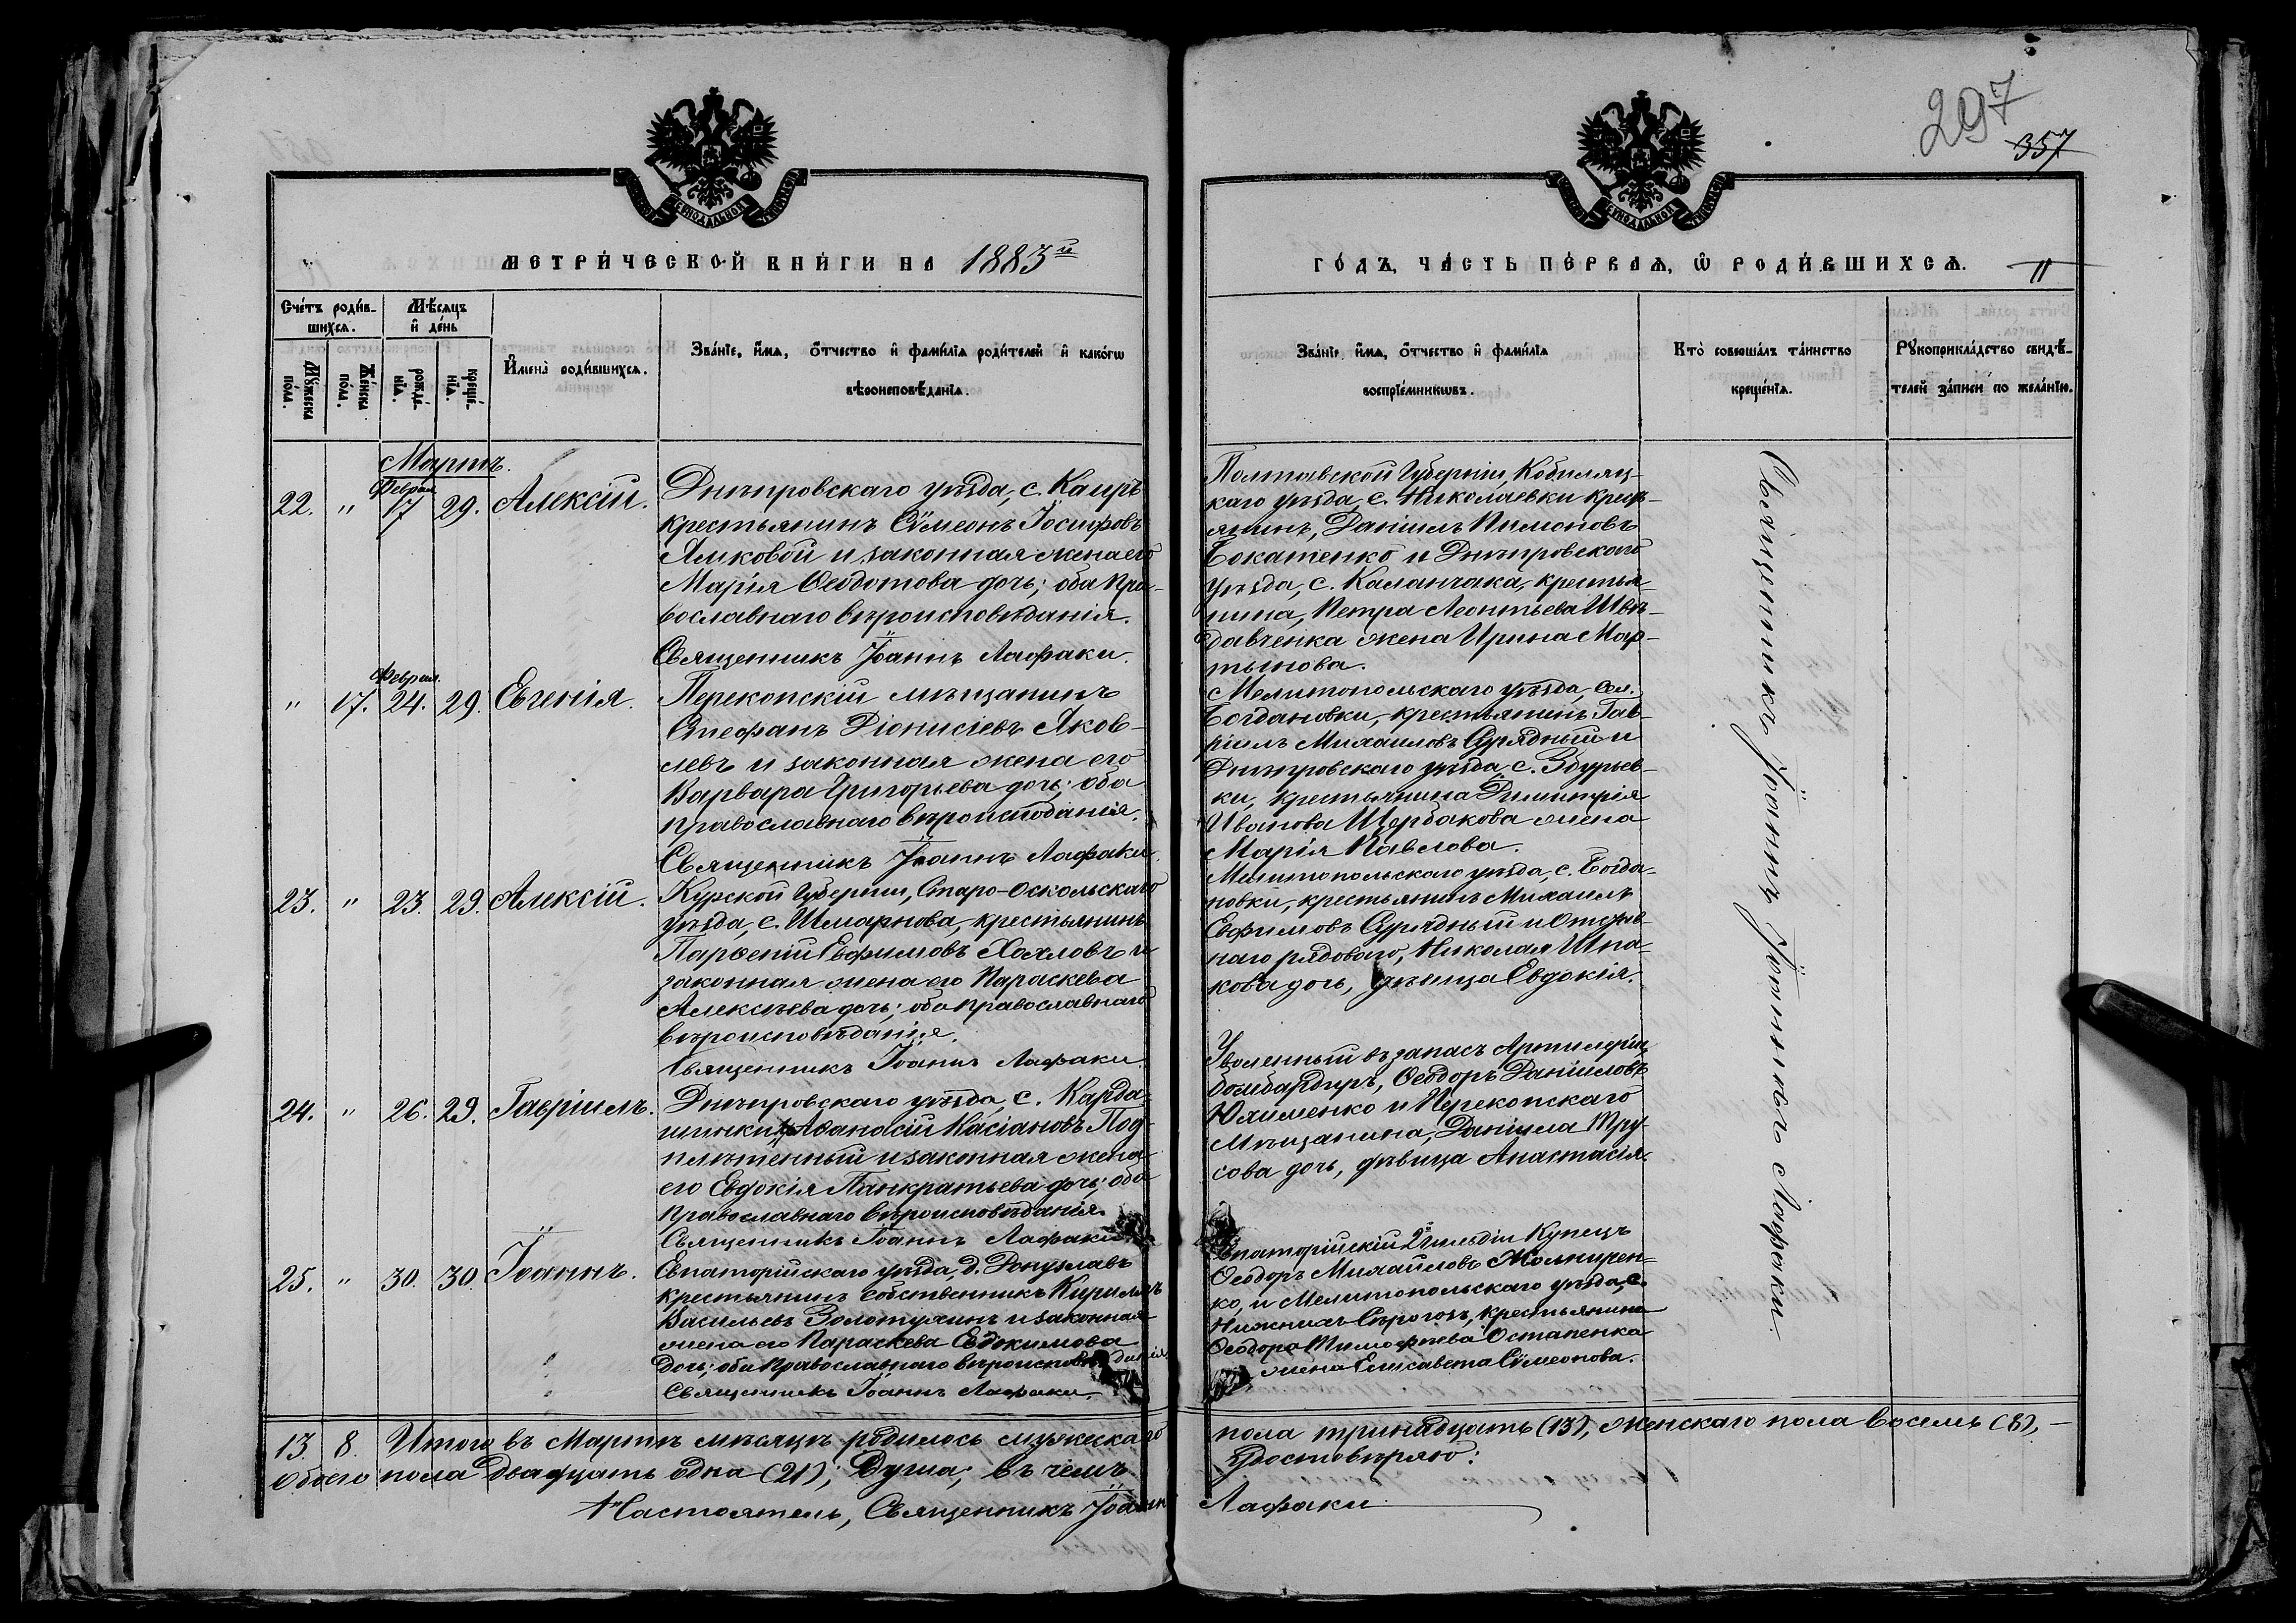 297
357
СѴНОДАЛЬНОЙ
СѴНОДАЛЬНОЙ
МЕТРИ́ЧЕСКОЙ КНИ́ГИ НА 1883й
ГО́ДЪ, ЧА́СТЬ ПЕ́РВАЯ, Ѡ РОДИ́ВШИХСЯ. 11
Сче́тъ роди́в-
шихся.
Мѣ́сяцъ
и де́нь
Му́жеска
по́ла.
Же́нска
по́ла.
рожде́-
нїя.
креще́-
нїя.
И҆мена̀ роди́вшихся.
Зва́нїе, и҆́мя, о҆́тчество и҆ фами́лїя роди́телей и҆ како́гѡ
вѣроисповѣ́данїя.
Зва́нїе, и҆́мя, о҆́тчество и҆ фами́лїя
воспрїе́мникѡвъ.
Кто̀ соверша́лъ та́инство
креще́нїя.
Рꙋкоприкла́дство свидѣ́-
телей за́писи по жела́нїю.
Мартъ.
22. " Феврал. 17 29. Алексій.
Днѣпровскаго уѣзда, с. Каиръ
крестьянинъ Сѵмеонъ Іосифовъ
Яиковой и законная жена его
Марія Ѳеодотова дочь; оба пра-
вославнаго вѣроисповѣданія.
Священникъ Іоаннъ Лафаки.
Полтавской Губерніи, Кобиляц-
каго уѣзда, с. Николаевки крест-
янинъ, Даніилъ Пимоновъ
Бокатенко и Днѣпровскаго
уѣзда, с. Каланчака, крестья-
нина, Петра Леонтьева Шве-
давченка жена Ирина Мар-
тынова.
" 17. Феврал. 24. 29. Евгенія.
Перекопскій мѣщанинъ
Стефанъ Діонисіевъ Яков-
левъ и законная жена его
Варвара Григорьева дочь; оба
православнаго вѣроисповданія.
Священникъ Іоаннъ Лафаки.
Мелитопольскаго уѣзда, сел.
Богдановки, крестьянинъ Гав-
ріилъ Михаиловъ Сурядный и
Днѣпровскаго уѣзда, с. Збурьев-
ки, крестьянина Димитрія
Иванова Щербакова жена
Марія Павлова.
23. " 23. 29. Алексій.
Курской Губерніи, Старо-Оскольскаго
уѣзда, с. Шмарнова, крестьянинъ
Парѳеній Евфимовъ Хохловъ и
законная жена его Параскева
Алексѣева дочь; оба православнаго
вѣроисповѣданія.
Священникъ Іоаннъ Лафаки.
Мелитопольскаго уѣзда, с. Богда-
новки, крестьянинъ Михаилъ
Евфимовъ Сурядный и Отстав-
наго рядоваго, Николая Шпа-
кова дочь, дѣвица Евдокія.
24. " 26. 29. Гавріилъ.
Днѣпровскаго уѣзда, с. Карда-
шинки, Аѳанасій Касіановъ Под-
плетенный и законная жена
его Евдокія Панкратьева дочь; оба
православнаго вѣроисповѣданія.
Священникъ Іоаннъ Лафаки.
Уволенный въ запасъ Артилеріи
бомбардиръ, Ѳеодоръ Даніиловъ
Юхименко и Перекопскаго
Мѣщанина, Даніила Тру-
сова дочь, дѣвица Анастасія.
25. " 30. 30. Іоаннъ.
Евпаторійскаго уѣзда, д. Донузлавъ
крестьянинъ собственникъ Кириллъ
Васильевъ Золотухинъ и законная
жена его Параскева Евдокимова
дочь; оба православнаго вѣроисповѣданія.
Священникъ Іоаннъ Лафаки.
Евпаторійскій 2й гильдіи Купецъ
Ѳеодоръ Михайловъ Жолтирен-
ко, и Мелитопольскаго уѣзда, с.
Нижнихъ Сѣрогозъ, крестьянина
Ѳеодора Тимофѣева Остапенка
жена Елисавета Сѵмеонова.
Священникъ Іоаннъ Іоанновъ Лафаки.
13. 8. Итого въ Мартѣ мѣсяцѣ родилось мужескаго
пола тринадцать (13), женскаго пола восемь (8), —
обоего пола двадцать одна (21), Душа; въ чемъ
удостовѣряю:
Настоятель, Священникъ Іоаннъ
Лафаки